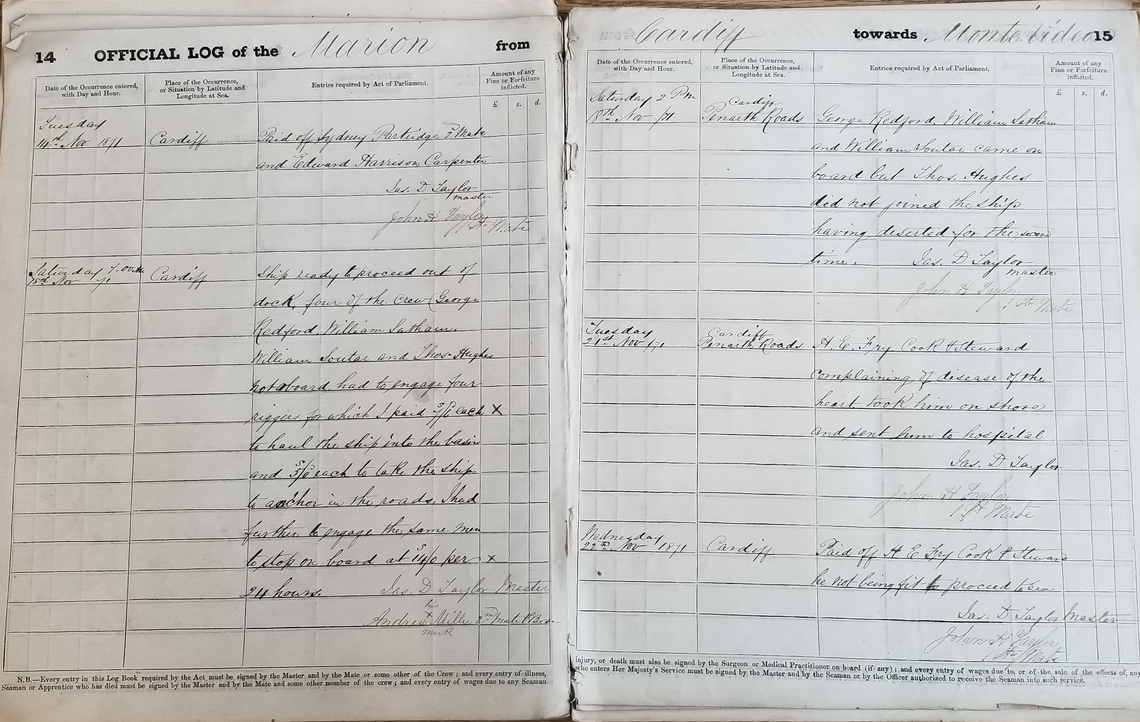 14 OFFICIAL LOG of the Marion from
Date of the Occurrence entered, with Day and Hour.
Place of the Occurrence, or Situation by Latitude and Longitude at Sea.
Entries required by Act of Parliament.
Amount of any Fine or Forfeiture inflicted.
£ s. d.
Tuesday
14th Nov 1871 Cardiff Paid off Sydney Partridge 3d Mate
and Edward Harrison Carpenter
Jas. D Taylor
master
John H Taylor
1st Mate
Saturday 7.00am
18th Nov /71 Cardiff Ship ready to proceed out of
dock, four of the Crew (George
Redford William Latham
William Soutar and Thos. Hughes
not aboard had to engage four
riggers for which I paid each X
to haul the ship into the basin
and 5/6 each to take the ship
to anchor in the roads, I had
further to engage the same men
to stop on board at per X
24 hours. Jas. D Taylor Master
his
Andrew X Mills 2nd Mate
mark
N.B.—Every entry in this Log Book required by the Act must be signed by the Master and by the Mate or some other of the Crew; and every entry of illness,
Seaman or Apprentice who has died must be signed by the Master and by the Mate and some other member of the crew; and every entry of wages due to any Seaman
Cardiff towards Monte Video 15
Date of the Occurrence entered, with Day and Hour.
Place of the Occurrence, or Situation by Latitude and Longitude at Sea.
Entries required by Act of Parliament.
Amount of any Fine or Forfeiture inflicted.
£ s. d.
Saturday 2 Pm Cardiff
18th Nov /71 Penarth Roads George Redford, William Latham
and William Soutar came on
board but Thos. Hughes
did not joined the ship
having deserted for the second
time. Jas. D Taylor
master
John H Taylor
1st Mate
Tuesday Cardiff
21st Nov /71 Penarth Roads H E Fry Cook & Steward
complaining of disease of the
heart took him on shore
and sent him to hospital
Jas. D Taylor
John H Taylor
1st Mate
Wednesday
22nd Nov 1871 Cardiff Paid off H E Fry Cook & Steward
he not being fit to proceed to sea
Jas. D Taylor Master
John H Taylor
1st Mate
Injury, or death must also be signed by the Surgeon or Medical Practitioner on board (if any); and every entry of wages due to, or of the sale of the effects of, any
who enters Her Majesty's Service must be signed by the Master and by the Seaman or by the Officer authorised to receive the Seaman into such service.